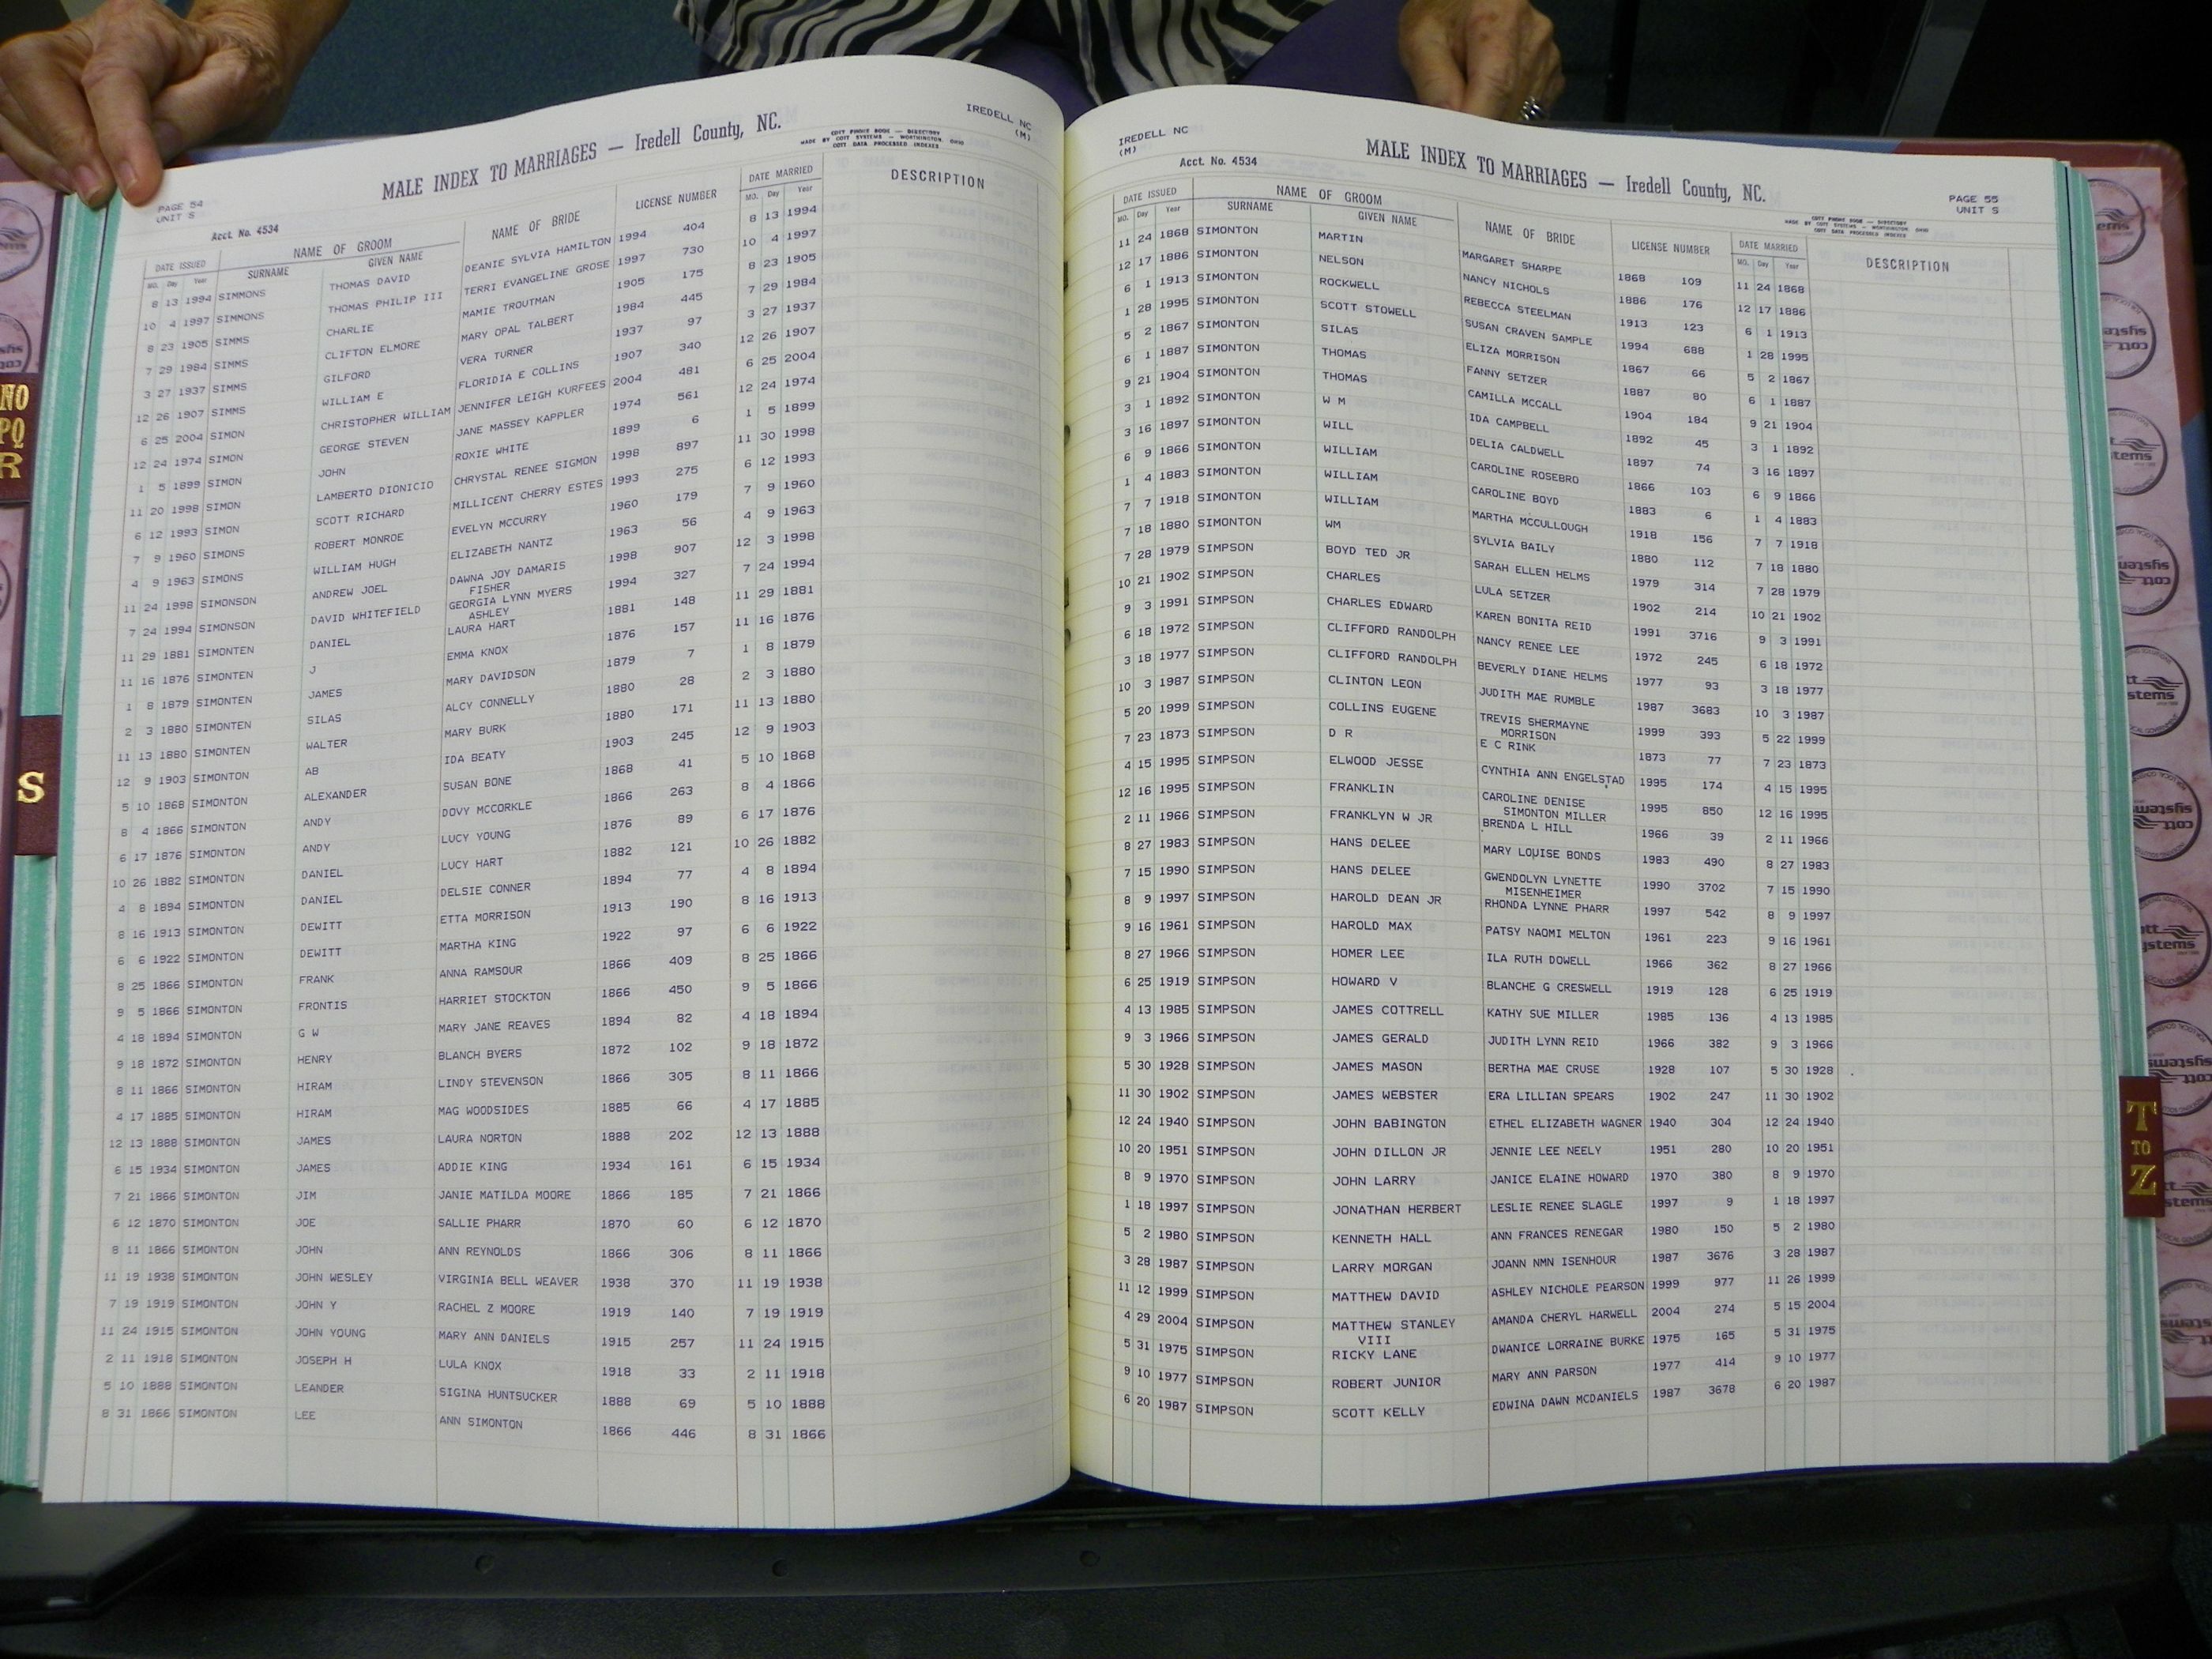 IREDELL NC
(M)
MALE INDEX TO MARRIAGES — Iredell County, NC.
COTT PHONE BOOK — DIRECTORY
MADE BY COTT SYSTEMS — WORTHINGTON, OHIO
COTT DATA PROCESSED INDEXES
PAGE 54
UNIT S
Acct. No. 4534
DATE ISSUED NAME OF GROOM NAME OF BRIDE LICENSE NUMBER DATE MARRIED DESCRIPTION
MO. Day Year SURNAME GIVEN NAME MO. Day Year
8 13 1994 SIMMONS THOMAS DAVID DEANIE SYLVIA HAMILTON 1994 404 8 13 1994
10 4 1997 SIMMONS THOMAS PHILIP III TERRI EVANGELINE GROSE 1997 730 10 4 1997
8 23 1905 SIMMS CHARLIE MAMIE TROUTMAN 1905 175 8 23 1905
7 29 1984 SIMMS CLIFTON ELMORE MARY OPAL TALBERT 1984 445 7 29 1984
3 27 1937 SIMMS GILFORD VERA TURNER 1937 97 3 27 1937
12 26 1907 SIMMS WILLIAM E FLORIDIA E COLLINS 1907 340 12 26 1907
6 25 2004 SIMON CHRISTOPHER WILLIAM JENNIFER LEIGH KURFEES 2004 481 6 25 2004
12 24 1974 SIMON GEORGE STEVEN JANE MASSEY KAPPLER 1974 561 12 24 1974
1 5 1899 SIMON JOHN ROXIE WHITE 1899 6 1 5 1899
11 20 1998 SIMON LAMBERTO DIONICIO CHRYSTAL RENEE SIGMON 1998 897 11 30 1998
6 12 1993 SIMON SCOTT RICHARD MILLICENT CHERRY ESTES 1993 275 6 12 1993
7 9 1960 SIMONS ROBERT MONROE EVELYN MCCURRY 1960 179 7 9 1960
4 9 1963 SIMONS WILLIAM HUGH ELIZABETH NANTZ 1963 56 4 9 1963
11 24 1998 SIMONSON ANDREW JOEL DAWNA JOY DAMARIS 1998 907 12 3 1998
FISHER
7 24 1994 SIMONSON DAVID WHITEFIELD GEORGIA LYNN MYERS 1994 327 7 24 1994
ASHLEY
11 29 1881 SIMONTEN DANIEL LAURA HART 1881 148 11 29 1881
11 16 1876 SIMONTEN J EMMA KNOX 1876 157 11 16 1876
1 8 1879 SIMONTEN JAMES MARY DAVIDSON 1879 7 1 8 1879
2 3 1880 SIMONTEN SILAS ALCY CONNELLY 1880 28 2 3 1880
11 13 1880 SIMONTEN WALTER MARY BURK 1880 171 11 13 1880
12 9 1903 SIMONTON AB IDA BEATY 1903 245 12 9 1903
5 10 1868 SIMONTON ALEXANDER SUSAN BONE 1868 41 5 10 1868
8 4 1866 SIMONTON ANDY DOVY MCCORKLE 1866 263 8 4 1866
6 17 1876 SIMONTON ANDY LUCY YOUNG 1876 89 6 17 1876
10 26 1882 SIMONTON DANIEL LUCY HART 1882 121 10 26 1882
4 8 1894 SIMONTON DANIEL DELSIE CONNER 1894 77 4 8 1894
8 16 1913 SIMONTON DEWITT ETTA MORRISON 1913 190 8 16 1913
6 6 1922 SIMONTON DEWITT MARTHA KING 1922 97 6 6 1922
8 25 1866 SIMONTON FRANK ANNA RAMSOUR 1866 409 8 25 1866
9 5 1866 SIMONTON FRONTIS HARRIET STOCKTON 1866 450 9 5 1866
4 18 1894 SIMONTON G W MARY JANE REAVES 1894 82 4 18 1894
9 18 1872 SIMONTON HENRY BLANCH BYERS 1872 102 9 18 1872
8 11 1866 SIMONTON HIRAM LINDY STEVENSON 1866 305 8 11 1866
4 17 1885 SIMONTON HIRAM MAG WOODSIDES 1885 66 4 17 1885
12 13 1888 SIMONTON JAMES LAURA NORTON 1888 202 12 13 1888
6 15 1934 SIMONTON JAMES ADDIE KING 1934 161 6 15 1934
7 21 1866 SIMONTON JIM JANIE MATILDA MOORE 1866 185 7 21 1866
6 12 1870 SIMONTON JOE SALLIE PHARR 1870 60 6 12 1870
8 11 1866 SIMONTON JOHN ANN REYNOLDS 1866 306 8 11 1866
11 19 1938 SIMONTON JOHN WESLEY VIRGINIA BELL WEAVER 1938 370 11 19 1938
7 19 1919 SIMONTON JOHN Y RACHEL Z MOORE 1919 140 7 19 1919
11 24 1915 SIMONTON JOHN YOUNG MARY ANN DANIELS 1915 257 11 24 1915
2 11 1918 SIMONTON JOSEPH H LULA KNOX 1918 33 2 11 1918
5 10 1888 SIMONTON LEANDER SIGINA HUNTSUCKER 1888 69 5 10 1888
8 31 1866 SIMONTON LEE ANN SIMONTON 1866 446 8 31 1866
IREDELL NC
(M)
MALE INDEX TO MARRIAGES — Iredell County, NC.
Acct. No. 4534
PAGE 55
UNIT S
COTT PHONE BOOK — DIRECTORY
MADE BY COTT SYSTEMS — WORTHINGTON, OHIO
COTT DATA PROCESSED INDEXES
DATE ISSUED NAME OF GROOM NAME OF BRIDE LICENSE NUMBER DATE MARRIED DESCRIPTION
MO. Day Year SURNAME GIVEN NAME MO. Day Year
11 24 1868 SIMONTON MARTIN MARGARET SHARPE 1868 109 11 24 1868
12 17 1886 SIMONTON NELSON NANCY NICHOLS 1886 176 12 17 1886
6 1 1913 SIMONTON ROCKWELL REBECCA STEELMAN 1913 123 6 1 1913
1 28 1995 SIMONTON SCOTT STOWELL SUSAN CRAVEN SAMPLE 1994 688 1 28 1995
5 2 1867 SIMONTON SILAS ELIZA MORRISON 1867 66 5 2 1867
6 1 1887 SIMONTON THOMAS FANNY SETZER 1887 80 6 1 1887
9 21 1904 SIMONTON THOMAS CAMILLA MCCALL 1904 184 9 21 1904
3 1 1892 SIMONTON W M IDA CAMPBELL 1892 45 3 1 1892
3 16 1897 SIMONTON WILL DELIA CALDWELL 1897 74 3 16 1897
6 9 1866 SIMONTON WILLIAM CAROLINE ROSEBRO 1866 103 6 9 1866
1 4 1883 SIMONTON WILLIAM CAROLINE BOYD 1883 6 1 4 1883
7 7 1918 SIMONTON WILLIAM MARTHA MCCULLOUGH 1918 156 7 7 1918
7 18 1880 SIMONTON WM SYLVIA BAILY 1880 112 7 18 1880
7 28 1979 SIMPSON BOYD TED JR SARAH ELLEN HELMS 1979 314 7 28 1979
10 21 1902 SIMPSON CHARLES LULA SETZER 1902 214 10 21 1902
9 3 1991 SIMPSON CHARLES EDWARD KAREN BONITA REID 1991 3716 9 3 1991
6 18 1972 SIMPSON CLIFFORD RANDOLPH NANCY RENEE LEE 1972 245 6 18 1972
3 18 1977 SIMPSON CLIFFORD RANDOLPH BEVERLY DIANE HELMS 1977 93 3 18 1977
10 3 1987 SIMPSON CLINTON LEON JUDITH MAE RUMBLE 1987 3683 10 3 1987
5 20 1999 SIMPSON COLLINS EUGENE TREVIS SHERMAYNE 1999 393 5 22 1999
MORRISON
7 23 1873 SIMPSON D R E C RINK 1873 77 7 23 1873
4 15 1995 SIMPSON ELWOOD JESSE CYNTHIA ANN ENGELSTAD 1995 174 4 15 1995
12 16 1995 SIMPSON FRANKLIN CAROLINE DENISE 1995 850 12 16 1995
SIMONTON MILLER
2 11 1966 SIMPSON FRANKLYN W JR BRENDA L HILL 1966 39 2 11 1966
8 27 1983 SIMPSON HANS DELEE MARY LOUISE BONDS 1983 490 8 27 1983
7 15 1990 SIMPSON HANS DELEE GWENDOLYN LYNETTE 1990 3702 7 15 1990
MISENHEIMER
8 9 1997 SIMPSON HAROLD DEAN JR RHONDA LYNNE PHARR 1997 542 8 9 1997
9 16 1961 SIMPSON HAROLD MAX PATSY NAOMI MELTON 1961 223 9 16 1961
8 27 1966 SIMPSON HOMER LEE ILA RUTH DOWELL 1966 362 8 27 1966
6 25 1919 SIMPSON HOWARD V BLANCHE G CRESWELL 1919 128 6 25 1919
4 13 1985 SIMPSON JAMES COTTRELL KATHY SUE MILLER 1985 136 4 13 1985
9 3 1966 SIMPSON JAMES GERALD JUDITH LYNN REID 1966 382 9 3 1966
5 30 1928 SIMPSON JAMES MASON BERTHA MAE CRUSE 1928 107 5 30 1928
11 30 1902 SIMPSON JAMES WEBSTER ERA LILLIAN SPEARS 1902 247 11 30 1902
12 24 1940 SIMPSON JOHN BABINGTON ETHEL ELIZABETH WAGNER 1940 304 12 24 1940
10 20 1951 SIMPSON JOHN DILLON JR JENNIE LEE NEELY 1951 280 10 20 1951
8 9 1970 SIMPSON JOHN LARRY JANICE ELAINE HOWARD 1970 380 8 9 1970
1 18 1997 SIMPSON JONATHAN HERBERT LESLIE RENEE SLAGLE 1997 9 1 18 1997
5 2 1980 SIMPSON KENNETH HALL ANN FRANCES RENEGAR 1980 150 5 2 1980
3 28 1987 SIMPSON LARRY MORGAN JOANN NMN ISENHOUR 1987 3676 3 28 1987
11 12 1999 SIMPSON MATTHEW DAVID ASHLEY NICHOLE PEARSON 1999 977 11 26 1999
4 29 2004 SIMPSON MATTHEW STANLEY AMANDA CHERYL HARWELL 2004 274 5 15 2004
VIII
5 31 1975 SIMPSON RICKY LANE DWANICE LORRAINE BURKE 1975 165 5 31 1975
9 10 1977 SIMPSON ROBERT JUNIOR MARY ANN PARSON 1977 414 9 10 1977
6 20 1987 SIMPSON SCOTT KELLY EDWINA DAWN MCDANIELS 1987 3678 6 20 1987
NO
PQ
R
S
T
TO
Z